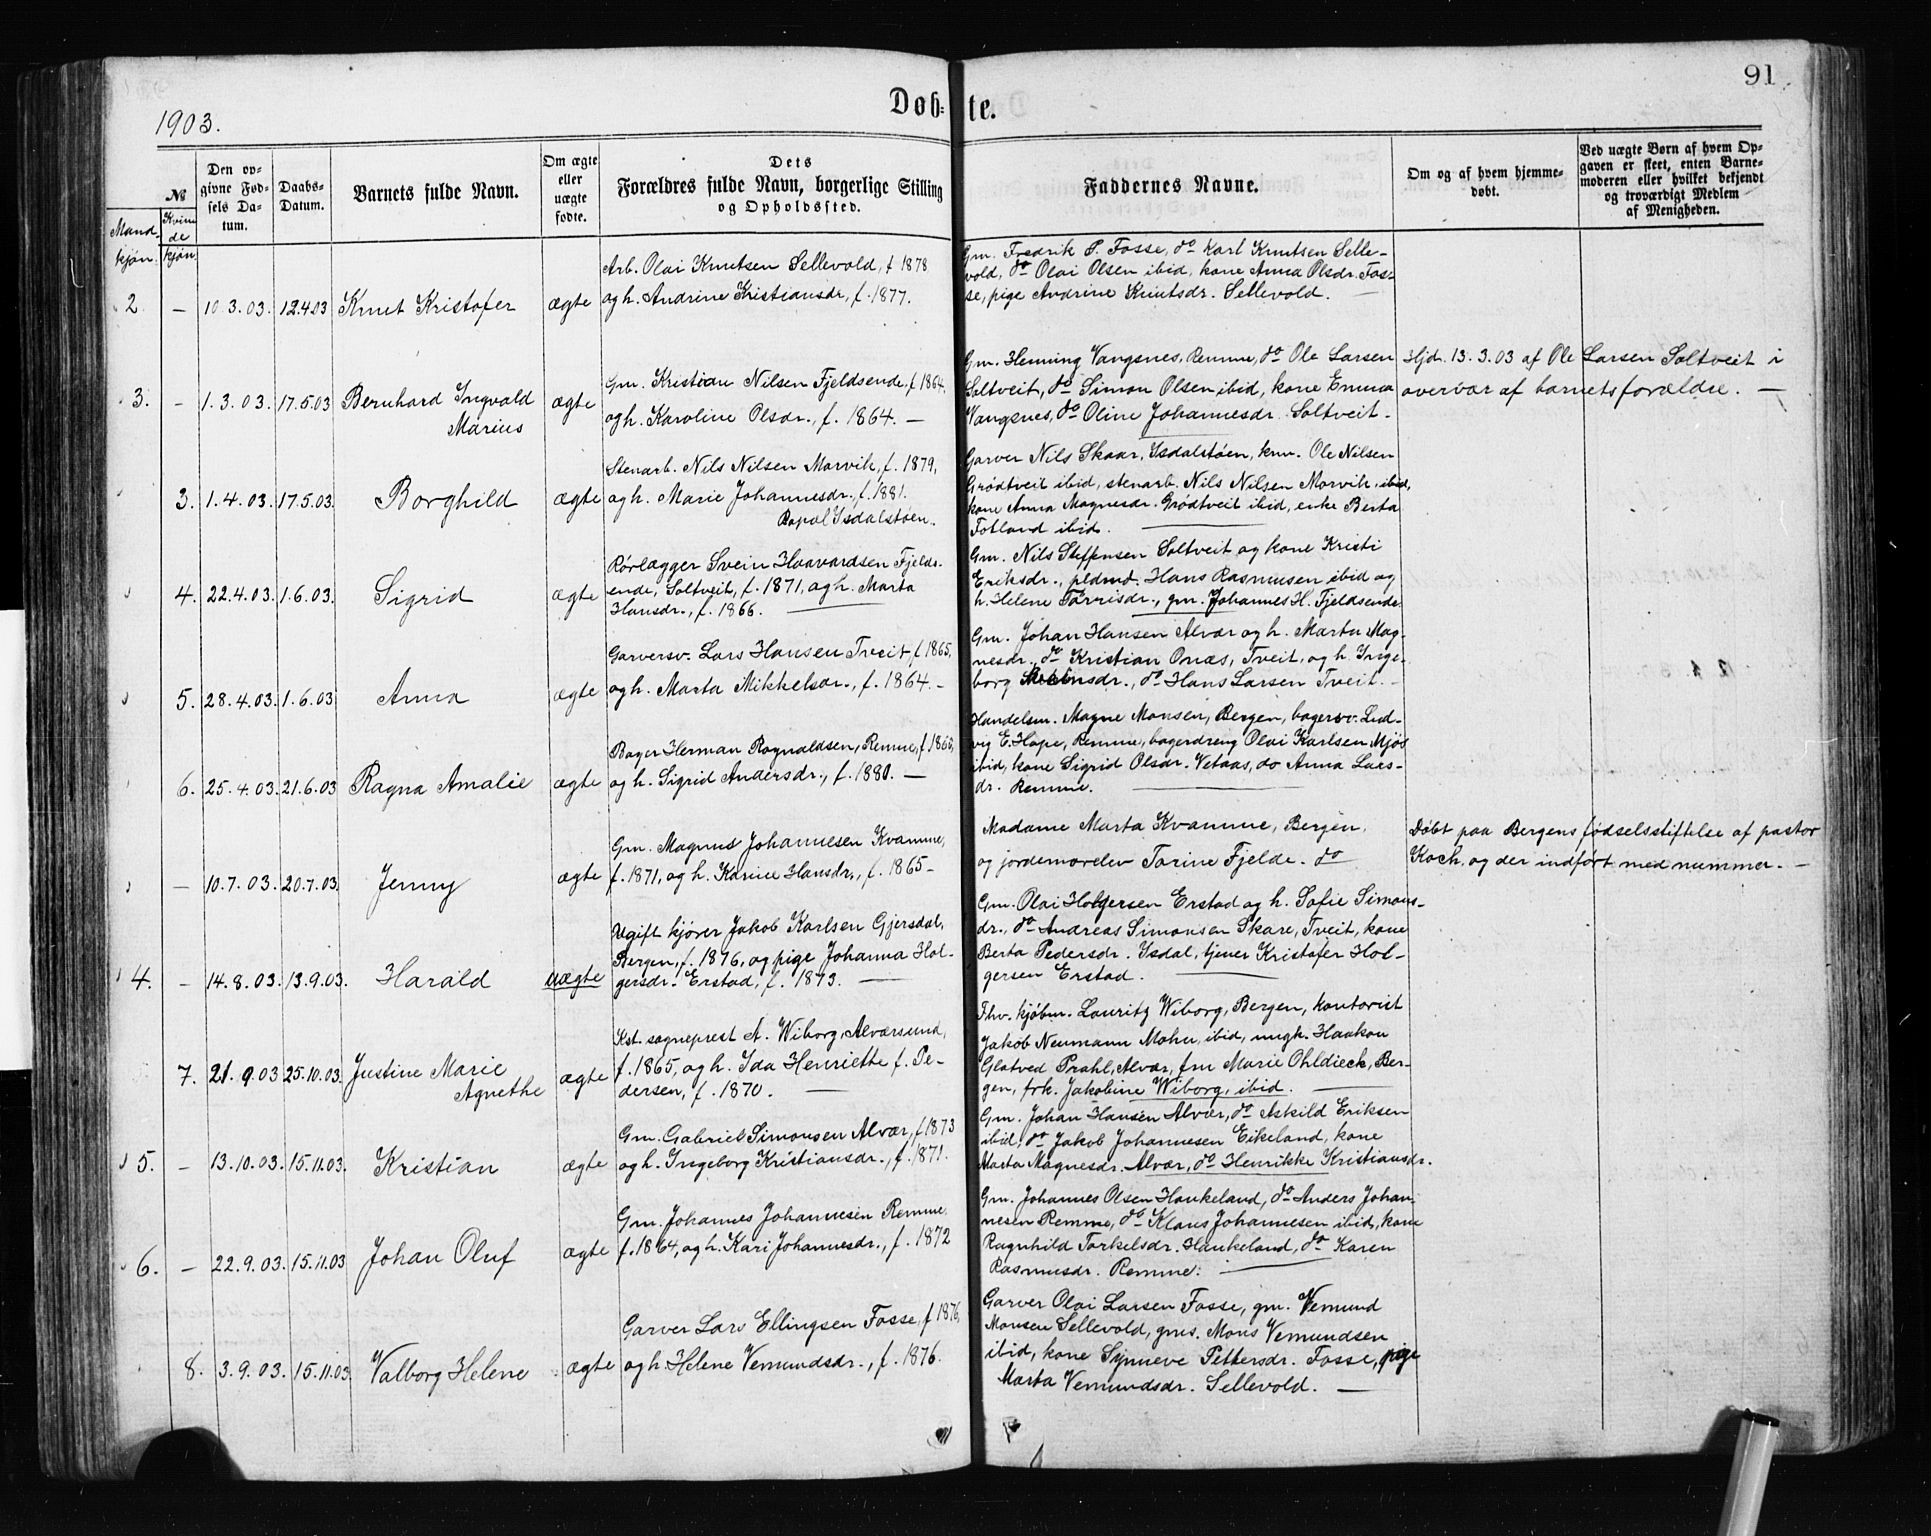 1903.
Døb=
te.
91
№
Mand-
kjøn.
Kvin-
de
kjøn
Den op-
givne Fød-
sels Da-
tum.
Daabs-
Datum.
Barnets fulde Navn.
Om ægte
eller
uægte
fødte.
Dets
Forældres fulde Navn, borgerlige Stilling
og Opholdssted.
Faddernes Navne.
Om og af hvem hjemme-
døbt.
Ved uægte Børn af hvem Op-
gaven er skeet, enten Barne-
moderen eller hvilket bekjendt
og troværdigt Medlem
af Menigheden.
2 – 10.3.03. 12.4.03 Knut Kristofer ægte
Arb. Olai Knutsen Sellevold, f. 1878
og h. Andrine Kristiansdr., f. 1877.
Gm. Fredrik P. Fosse, do Karl Knutsen Selle-
vold, do Olai Olsen ibid, kone Anna Olsdr. Fos-
se, pige Andrine Knutsdr. Sellevold. —
3. – 1.3.03. 17.5.03 Bernhard Ingvald
Marius
ægte
Gm. Kristian Nilsen Fjeldsende, f. 1864,
og h. Karoline Olsdr., f. 1864. —
Gm. Henning Vangsnes, Remme, do Ole Larsen
Soltveit, do Simon Olsen ibid, kone Emma
Vangsnes, do Oline Johannesdr. Soltveit.
Hjd. 13.3.03 af Ole Larsen Soltveit i
overvær af barnets forældre. —
3. 1.4.03. 17.5.03. Borghild ægte
Stenarb. Nils Nilsen Morvik, f. 1879,
og h. Marie Johannesdr., f. 1881.
Isdalstøen.
Garver Nils Skaar, Isdalstøen, knm. Ole Nilsen
Grødtveit ibid, stenarb. Nils Nilsen Morvik, ibid,
kone Anna Magnesdr. Grødtveit ibid, enke Berta
Fotland ibid.
4. 22.4.03. 1.6.03. Sigrid ægte
Rørlægger Svein Haavardsen Fjelds-
ende, Soltveit, f. 1871, og h. Marta
Hansdr., f. 1866.
Gm. Nils Steffensen Soltveit og kone Kristi
Eriksdr., pldmd. Hans Rasmusen ibid og
h. Helene Torrisdr., gm. Johannes H. Fjeldsende.
5. 28.4.03. 1.6.03 Anna ægte
Garversv. Lars Hansen Tveit, f. 1865,
og h. Marta Mikkelsdr., f. 1864. –
Gm. Johan Hansen Alvær og h. Marta Mag-
nesdr., do Kristian Onæs, Tveit, og h. Inge-
borg , do Hans Larsen Tveit. –
6. 25.4.03. 21.6.03 Ragna Amalie ægte
Bager Herman Ragnaldsen, Remme, f. 1866,
og h. Sigrid Andersdr., f. 1880. —
Handelsm. Magne Monsen, Bergen, bagersv. Lud-
vig E. Hope, Remme, bagerdreng Olai Karlsen Mjøs
ibid, kone Sigrid Olsdr. Vetaas, do Anna Lars-
dr. Remme.
– 10.7.03. 20.7.03. Jenny ægte
Gm. Magnus Johannesen Kvamme,
f. 1871, og h. Karine Hansdr., f. 1865 –
Madame Marta Kvamme, Bergen,
og jordemorelev Torine Fjelde. do
Døbt paa Bergens fødselsstiftelse af pastor
Koch, og der indført med nummer. —
4. – 14.8.03. 13.9.03. Harald uægte
Ugift kjører Jakob Karlsen Gjersdal,
Bergen, f. 1876, og pige Johanna Hol-
gersdr. Erstad, f. 1873. —
Gm. Olai Holgersen Erstad og h. Sofie Simons-
dr., do Andreas Simonsen Skare, Tveit, kone
Berta Pedersdr. Isdal, tjener Kristofer Hol-
gersen Erstad.
7. 21.9.03 25.10.03. Justine Marie
Agnethe
ægte
Kst. sogneprest A. Wiborg, Alværsund,
f. 1865, og h. Ida Henriette f. Pe-
dersen, f. 1870. —
Fhv. kjøbm. Lauritz Wiborg, Bergen, kontorist
Jakob Neumann Mohn, ibid, ungk. Haakon
Glatved Prahl, Alvær, fru Marie Ohldieck, Ber-
gen, frk. Jakobine Wiborg, ibid.
5. – 13.10.03. 15.11.03. Kristian ægte
Gm. Gabriel Simonsen Alvær, f. 1873
og h. Ingeborg Kristiansdr., f. 1871.
Gm. Johan Hansen Alvær, do Askild Eriksen
ibid, do Jakob Johannesen Eikeland, kone
Marta Magnesdr. Alvær, do Henrikke Kristiansdr.
6. – 22.9.03. 15.11.03 Johan Oluf ægte
Gm. Johannes Johannesen Remme,
f. 1864, og h. Kari Johannesdr., f. 1872
Gm. Johannes Olsen Haukeland, do Anders Johan-
nesen Remme, do Klaus Johannesen ibid, kone
Ragnhild Torkelsdr. Haukeland, do Karen
Rasmusdr. Remme.
8. 3.9.03. 15.11.03. Valborg Helene ægte
Garver Lars Ellingsen Fosse, f. 1876,
og h. Helene Vemundsdr., f. 1876.
Garver Olai Larsen Fosse, gm. Vemund
Monsen Sellevold, gms. Mons Vemundsen
ibid, kone Synneve Pettersdr. Fosse, pige
Marta Vemundsdr. Sellevold. —